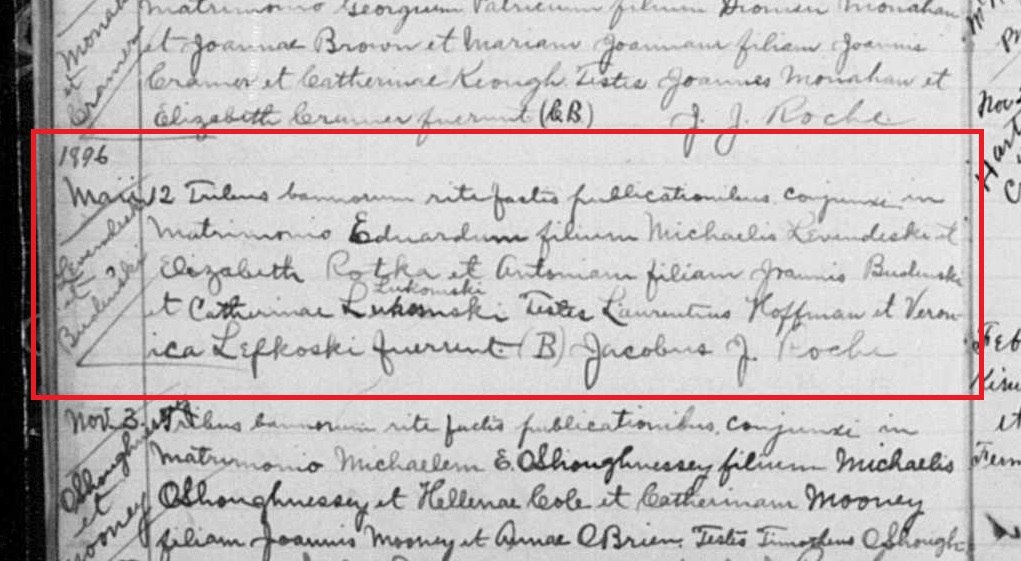 Matrimonio Georgium Patricium filium Dionisii Monahan
et Joannae Brown et Mariam Joannam filiam Joannis
Cramer et Catherinae Keough. Testes Joannes Monahan et
Elizabeth Cramer fuerunt (CB) J. J. Roche
Monahan
et
Cramer
1896
Maii 12 Tribus bannorum rite factis publicationibus, conjunxi in
Matrimonio Eduardum filium Michaelis Levindeski et
Elizabeth Rotka et Antoniam filiam Joannis Budinski
Lukomski
et Catherinae Lukomski Testes Laurentius Hoffman et Veron-
ica Lefkoski fuerunt. (B) Jacobus J. Roche
Levindeski
et
Budinski
Nov. 3. Tribus bannorum rite factis publicationibus, conjunxi in
Matrimonio Michaelem E. OShoughnessey filium Michaelis
OShoughnessey et Hellenae Cole et Catherinam Mooney
filiam Joannis Mooney et Annae OBrien. Testes Timotheus OShough-
OShoughnessey
et
Mooney
Nov
Hart
Feb
et